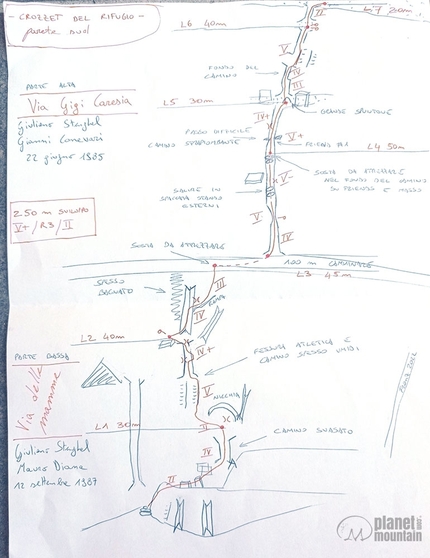 - CROZZET DEL RIFUGIO -
parete sud
PARTE ALTA
Via Gigi Caresia
Giuliano Stenghel
Gianni
22 giugno 1985
250 m SVILUPPO
V+/R3/II
L7 20m
L6 40m
II
V
FONDO DEL
CAMINO
IV
L5 30m
GRANDE SPUNTONE
IV+
PASSO DIFFICILE
CAMINO STRAPIOMBANTE
V+
FRIEND
L4 50m
SOSTA DA ATTREZZARE
NEL FONDO DEL CAMINO
SU FRIENDS E MASSO
V-
SALIRE IN
SPACCATA STANDO
ESTERNI
V
IV
SOSTA DA ATTREZZARE
100 m CAMMINARE
L3 45m
III
SPESSO
BAGNATO
IV
L2 40m
IV+
FESSURA ATLETICA E
CAMINO SPESSO UMIDI
PARTE BASSA
Via delle
mamme
V
NICCHIA
L1 30m
II
CAMINO SVASATO
IV
Giuliano Stenghel
Mauro Diana
12 settembre 1987
II
planet
mountain